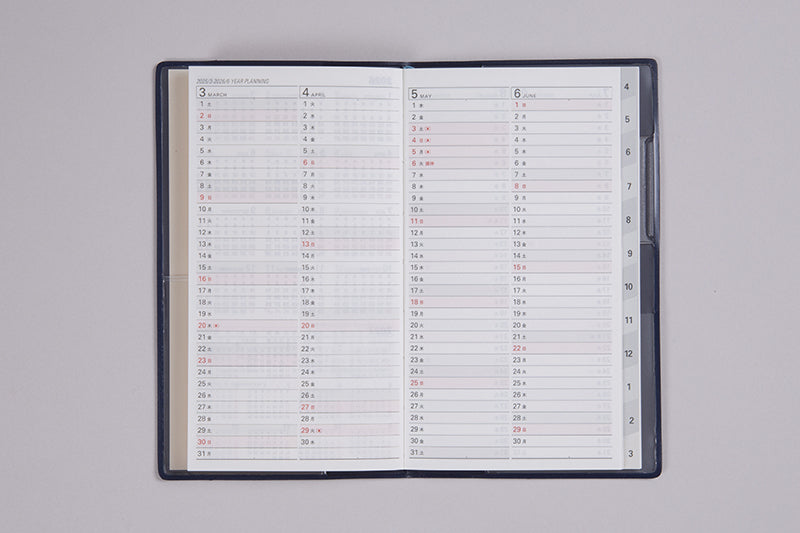 2025/3-2026/6 YEAR PLANNING
3 MARCH
1 土
2 日
3 月
4 火
5 水
6 木
7 金
8 土
9 日
10 月
11 火
12 水
13 木
14 金
15 土
16 日
17 月
18 火
19 水
20 木
21 金
22 土
23 日
24 月
25 火
26 水
27 木
28 金
29 土
30 日
31 月
4 APRIL
1 火
2 水
3 木
4 金
5 土
6 日
7 月
8 火
9 水
10 木
11 金
12 土
13 日
14 月
15 火
16 水
17 木
18 金
19 土
20 日
21 月
22 火
23 水
24 木
25 金
26 土
27 日
28 月
29 火
30 水
5 MAY
1 木
2 金
3 土
4 日
5 月
6 火 振休
7 水
8 木
9 金
10 土
11 日
12 月
13 火
14 水
15 木
16 金
17 土
18 日
19 月
20 火
21 水
22 木
23 金
24 土
25 日
26 月
27 火
28 水
29 木
30 金
31 土
6 JUNE
1 日
2 月
3 火
4 水
5 木
6 金
7 土
8 日
9 月
10 火
11 水
12 木
13 金
14 土
15 日
16 月
17 火
18 水
19 木
20 金
21 土
22 日
23 月
24 火
25 水
26 木
27 金
28 土
29 日
30 月
4
5
6
7
8
9
10
11
12
1
2
3